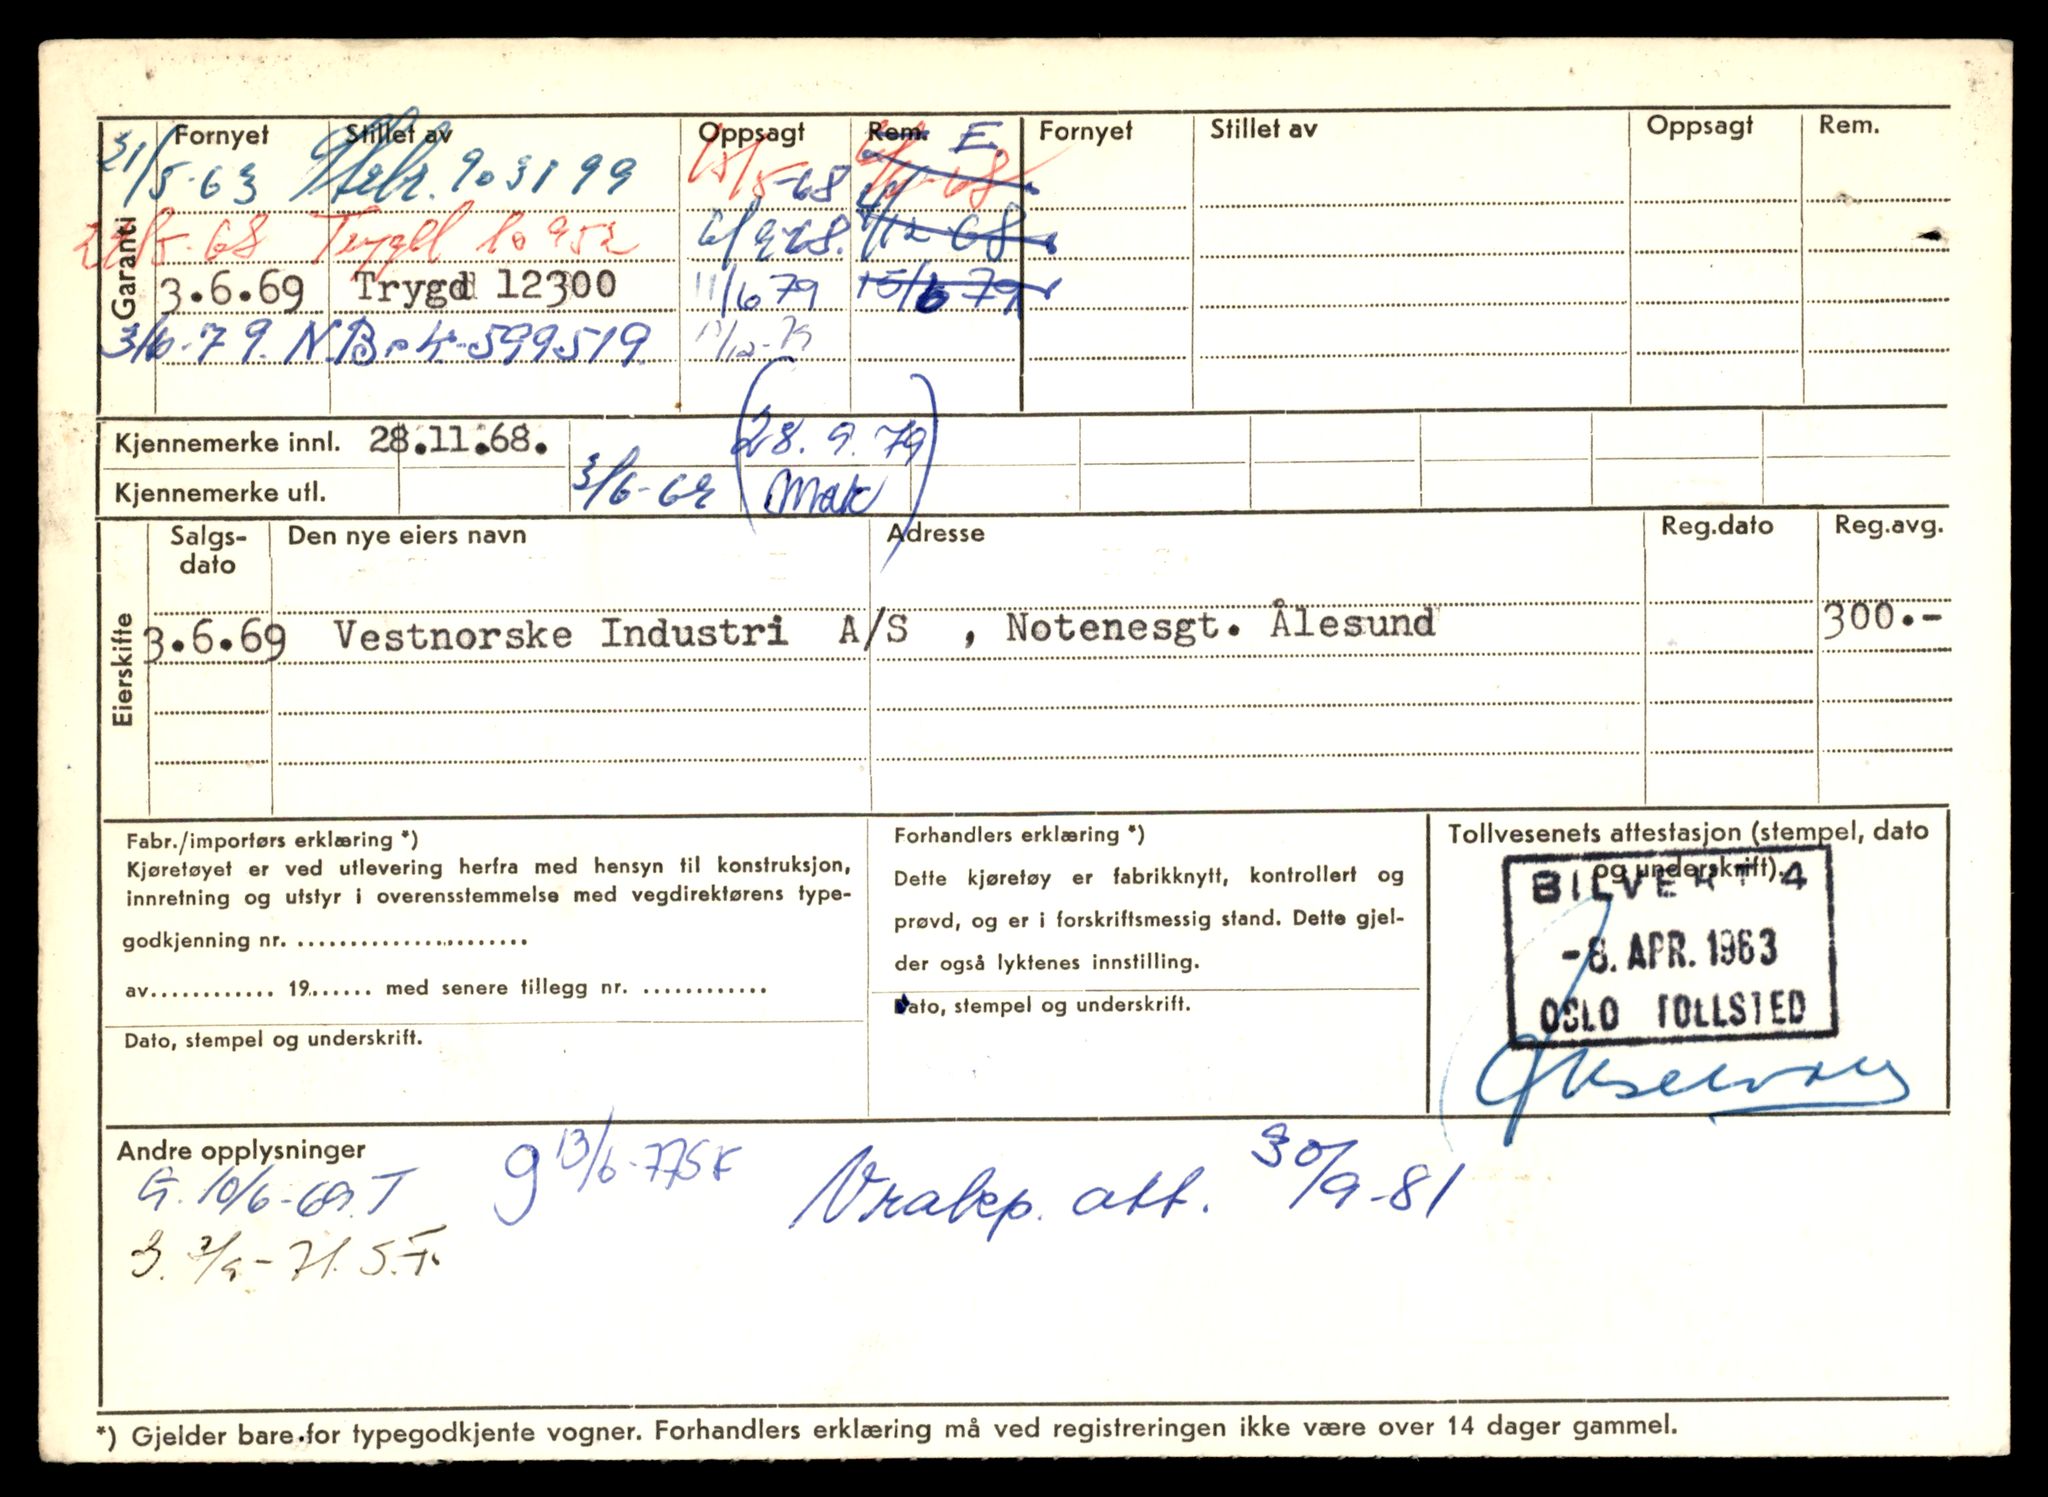 Garanti
Fornyet Stillet av Oppsagt Rem. E. Fornyet Stillet av Oppsagt Rem.
31/5-63 903199 15/5-68
68 Trygd 10952 12-68
3.6.69 Trygd 12300 11/6 79 15/6 79
3/6-79. 599519 11/12-79
Kjennemerke innl. 28.11.68. (28.9.79
Kjennemerke utl. 3/6-69 Mak)
Eierskifte
Salgs-dato Den nye eiers navn Adresse Reg.dato Reg.avg.
3.6.69 Vestnorske Industri A/S , Notenesgt. Ålesund 300.-
Fabr./importørs erklæring *)
Kjøretøyet er ved utlevering herfra med hensyn til konstruksjon,
innretning og utstyr i overensstemmelse med vegdirektørens type-
godkjenning nr. .......................
av............ 19...... med senere tillegg nr. ............
Dato, stempel og underskrift.
Forhandlers erklæring *)
Dette kjøretøy er fabrikknytt, kontrollert og
prøvd, og er i forskriftsmessig stand. Dette gjel-
der også lyktenes innstilling.
Dato, stempel og underskrift.
Tollvesenets attestasjon (stempel, dato
og underskrift).
BILVERT 4
-8. APR. 1963
OSLO TOLLSTED
Andre opplysninger
G. 10/6-69. T 9 13/6-77 SF Vrakp. att. 30/9-81
3. 7/9-71. S.T.
*) Gjelder bare for typegodkjente vogner. Forhandlers erklæring må ved registreringen ikke være over 14 dager gammel.